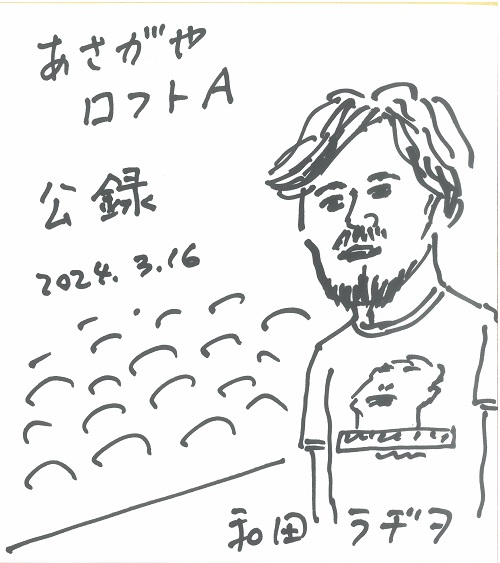 あさがや
ロフトA
公録
2024.3.16
和田ラヂヲ